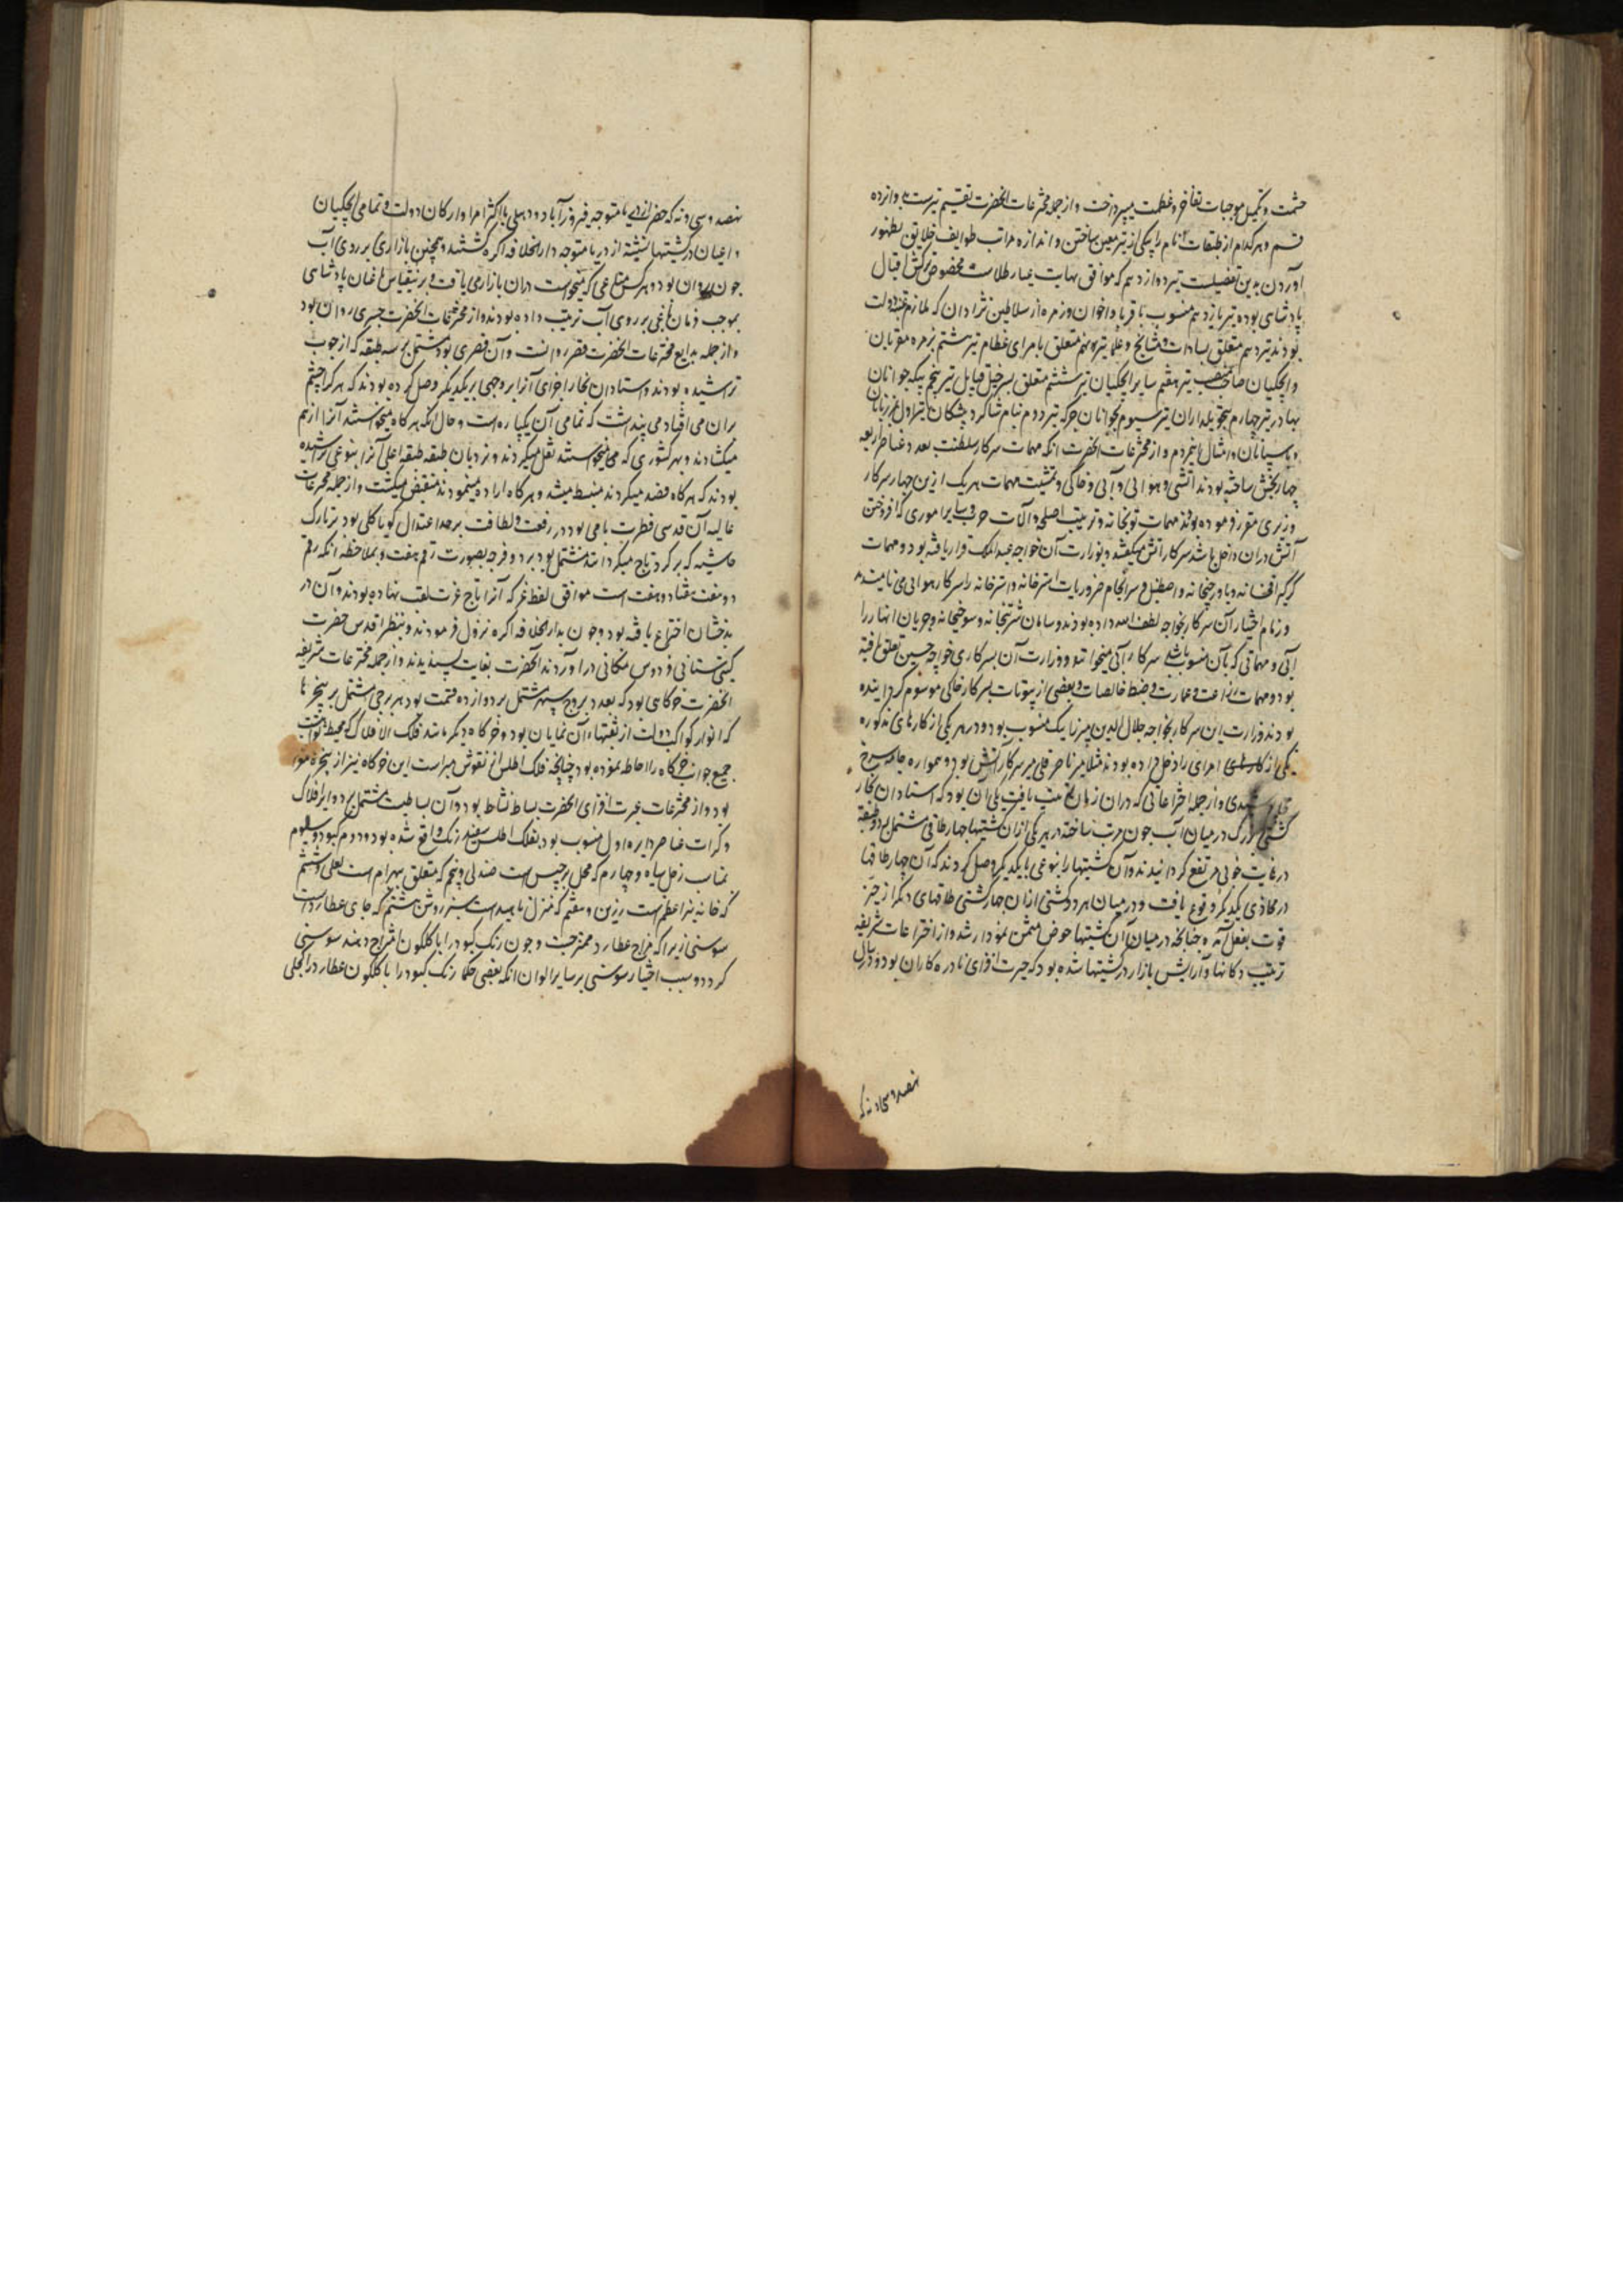 حشمت و تکمیل موجبات تفاخر و عظمت میپرداخت و از جمله مخترعات آنحضرت تقسیم تیرست به دوازده
قسم و هر کدام از طبقات انام را بیکی از تیر معین ساختن و اندازه مراتب طوایف خلایق بظهور
آوردن بدین تفصیلست تیر دوازدهم که موافق نهایت عیار طلاست مخصوص ترکش اقبال
پادشاهی بوده تیر یازدهم منسوب باقربا و اخوان و زمره از سلاطین نژادان که ملازم عتبه دولت
بودند تیر دهم متعلق بسادات و مشایخ و علما تیر نهم متعلق بامرای عظام تیر هشتم بزمره مقربان
و ایچکیان صاحب منصب تیر هفتم سایر ایچکیان تیر ششم متعلق بسرخیل قبایل تیر پنجم بیکه جوانان
بهادر تیر چهارم بتحویلداران تیر سیوم بجوانان جرکه تیر دوم بنام شاکرد پیشکان تیر اول بدربانان
و پاسبانان و امثال این مردم و از مخترعات آنحضرت آنکه مهمات سرکار سلطنت بعدد عناصر اربعه
چهار بخش ساخته بودند آتشی و هوایی و آبی و خاکی و تمشیت مهمات هر یک ازین چهار سرکار
وزیری مقرر فرموده بودند مهمات توپخانه و ترتیب اصلحه و آلات حرب و سایر اموری که افروختن
آتش دران داخل باشد سرکار آتش میکفتند و بوزارت آن خواجه عبدالملک قرار یافته بود و مهمات
کرکیراقخانه و باورچیخانه و اصطبل و سرانجام ضروریات استرخانه و اشترخانه را سرکار هوایی می نامیدند
و زمام اختیار آن سرکار بخواجه لطف الله داده بودند و سامان شربتخانه و سوجیخانه و جریان انهار را
آبی و مهماتی که بآن منسوب باشد سرکار آبی میخواندند و وزارت آن بسرکاری خواجه حسین تعلق یافته
بود و مهمات زراعت و عمارت و ضبط خالصات و بعضی از بیوتات بسرکار خاکی موسوم کردانیده
بودند وزارت این سرکار بخواجه جلال الدین میرزا بیک منسوب بود و در هر یکی از کارهای مذکوره
یکی از امرای را دخل داده بودند مثلا میر ناصر قلی میر سرکار آتش بود و همواره جامه سرخ
پوشیدی و از جمله اختراعاتی که دران زمان ترتیب یافت یکی آن بود که استادان نجار
کشتی بزرک در میان آب جون مرتب ساختند در هر یکی ازان کشتیها چهار طاقی مشتمل بر دو طبقه
در غایت خوبی مرتفع کردانیدند و آن کشتیها را بنوعی بایکدیکر وصل کردند که آن چهار طاقها
در محاذی یکدیکر وقوع یافت و در میان هر دو کشتی ازان چهار کشتی طاقهای دیکر از حیز
قوت بفعل آمده چنانچه در میان آن کشتیها حوض مثمن نمودار شد و از اختراعات شریفه
ترتیب دکانها و آرایش بازار در کشتیها شده بود که حیرت افزای نادره کاران بود و در سال
نهصد و سی و نه که
نهصد و سی و نه که حضرت از دریا متوجه فیروزآباد دهلی با اکثر امرا و ارکان دولت و تمامی ایچکیان
و اعیان در کشتیها نشسته از دریا متوجه دارالخلافه آکره شدند همچنین بازاری بر روی آب
جون روان بود و هر کس متاعی که میخواست دران بازار می یافت و برین قیاس باغبانان پادشاهی
بموجب فرمان باغی بر روی آب ترتیب داده بودند و از مخترعات آنحضرت جسری روان بود
و از جمله بدایع مخترعات آنحضرت قصر روانست و آن قصری بود مشتمل بر سه طبقه که از چوب
تراشیده بودند و استادان نجار اجزای آنرا بر وجهی بر یکدیکر وصل کرده بودند که هر کرا چشم
بران می افتاد می پنداشت که تمامی آن یکپاره است و حال آنکه هر کاه میخواستند آنرا از هم
میکشادند و بهر کشوری که می خواستند نقل میکردند و نردبان طبقه طبقه اعلی آنرا بنوعی تراشیده
بودند که هر کاه قصد میکردند منبسط میشد و هر کاه اراده مینمودند منقبض میکشت و از جمله مخترعات
عالیه آن قدسی فطرت تاجی بود در رفعت و لطافت بر حد اعتدال کویا کلی بود بر تارک
حاشیه که بر کرد تاج میکردانند مشتمل بود بر دو فرجه بصورت رقم هفت و بملاحظه آنکه رقم
دو هفت هفتاد و هفت است موافق لفظ عز که آنرا تاج عزت لقب نهاده بودند و آن در
بدخشان اختراع یافته بود و چون بدارالخلافه آکره نزول فرمودند و بنظر اقدس حضرت
کیتی ستانی فردوس مکانی درآوردند آنحضرت بغایت پسندیدند و از جمله مخترعات شریفه
آنحضرت خرکاهی بود که بعدد بروج سپهر مشتمل بر دوازده قسمت بود هر برجی مشتمل بر پنجرها
که انوار کواکب دولت از ثقبهاء آن نمایان بود و خرکاه دیکر مانند فلک الافلاک که محیط ثوابت
جمیع جوانب خرکاه را احاطه نموده بود چنانچه فلک اطلس از نقوش مبراست این خرکاه نیز از پنجره مبرا
بود و از مخترعات عبرت افزای آنحضرت بساط نشاط بود و آن بساطیست مشتمل بر دوایر افلاک
و کرات عناصر دایره اول منسوب بود بفلک اطلس سفید رنک واقع شده بود و دوم کبود و سیوم
بمناسب زحل سیاه و چهارم که محل برجیس است صندلی و پنجم که متعلق ببهرام است لعلی و ششم
که خانه نیر اعظم است زرین و هفتم که منزل ناهید است سبز روشن هشتم که جای عطاردست
سوسنی زیرا که مزاج عطارد ممتزجست و چون رنک کبود را با کلکون امتزاج دهند سوسنی
کردد و سبب اختیار سوسنی بر سایر الوان آنکه بعضی حکما رنک کبود را با کلکون عطارد را کحلی